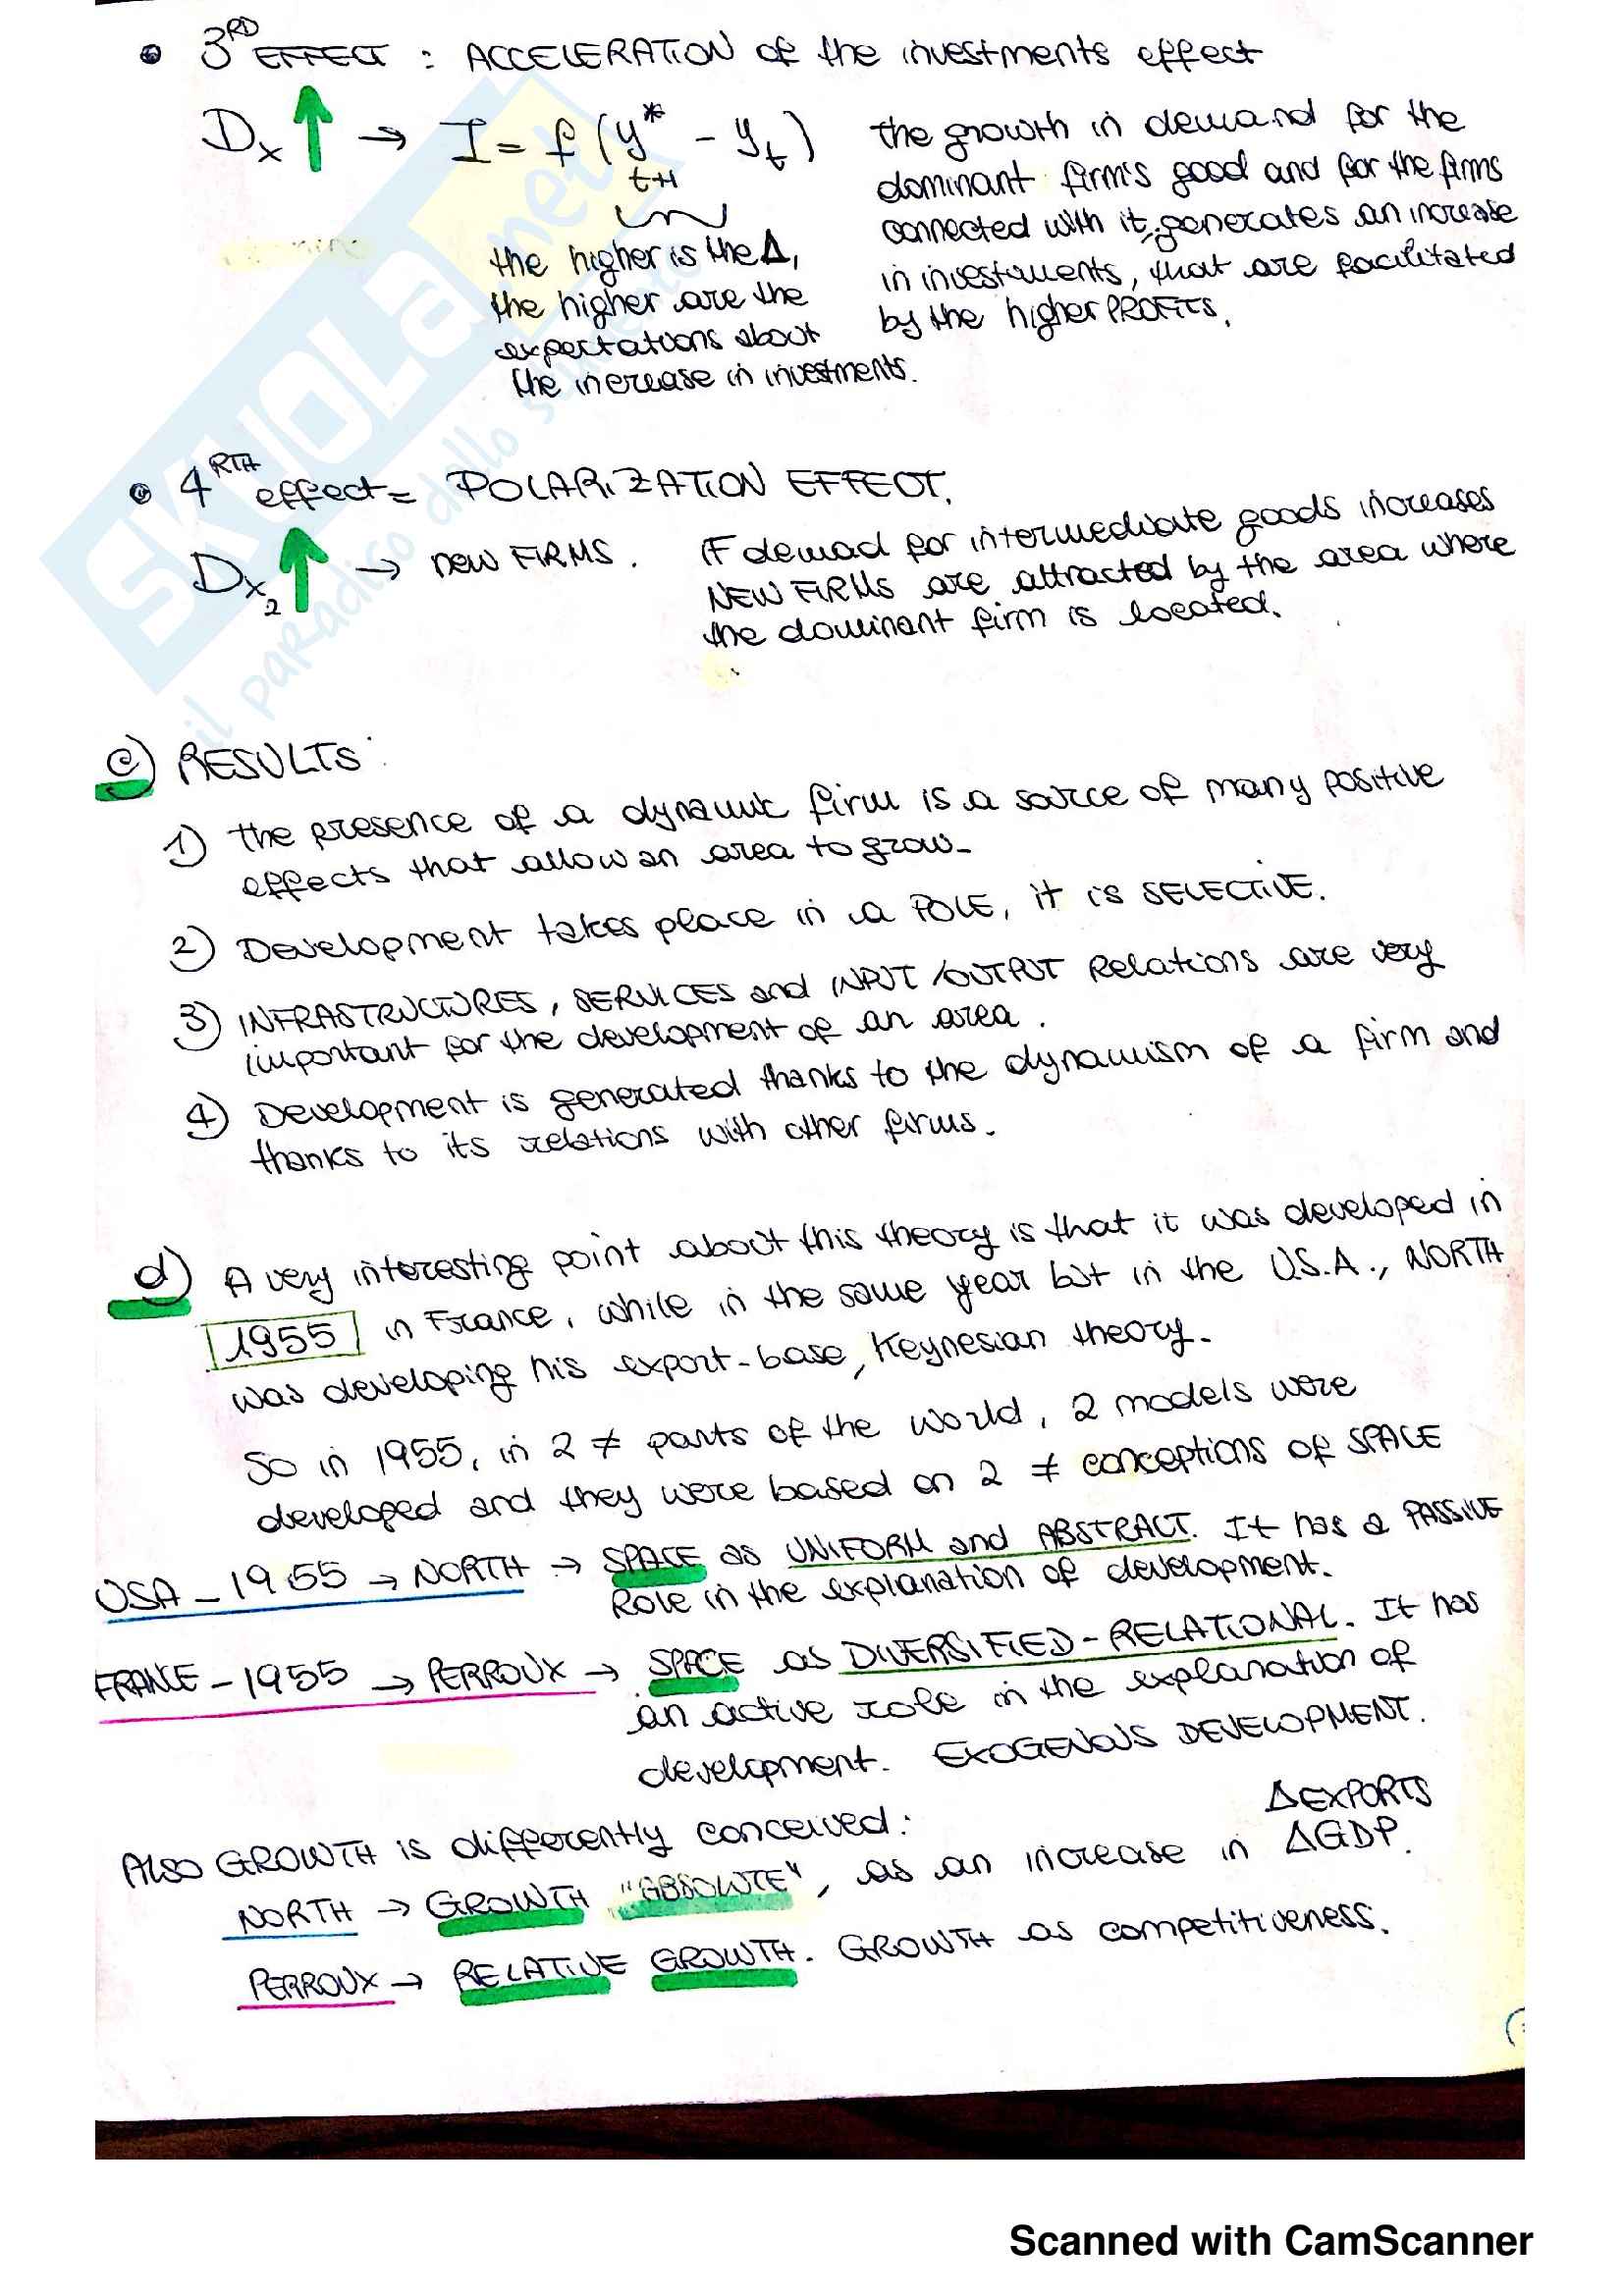 • 3RD EFFECT : ACCELERATION of the investments effect
Dx ↑ → I = f (y*t+1 - yt)
the growth in demand for the
dominant firm's good and for the firms
connected with it, generates an increase
in investments, that are facilitated
by the higher PROFITS.
the higher is the Δ,
the higher are the
expectations about
the increase in investments.
• 4RTH effect = POLARIZATION EFFECT.
Dx2 ↑ → new FIRMS.
IF demad for intermediate goods increases
NEW FIRMS are attracted by the area where
the dominant firm is located.
c) RESULTS:
1) the presence of a dynamic firm is a source of many positive
effects that allow an area to grow.
2) Development takes place in a POLE, it is SELECTIVE.
3) INFRASTRUCTURES, SERVICES and INPUT/OUTPUT Relations are very
important for the development of an area.
4) Development is generated thanks to the dynamism of a firm and
thanks to its relations with other firms.
d) A very interesting point about this theory is that it was developed in
1955 in France, while in the same year but in the U.S.A., NORTH
was developing his export-base, Keynesian theory.
So in 1955, in 2 ≠ parts of the world, 2 models were
developed and they were based on 2 ≠ conceptions of SPACE
USA - 1955 → NORTH → SPACE as UNIFORM and ABSTRACT. It has a PASSIVE
Role in the explanation of development.
FRANCE - 1955 → PERROUX → SPACE as DIVERSIFIED - RELATIONAL. It has
an active role in the explanation of
development. EXOGENOUS DEVELOPMENT.
Also GROWTH is differently conceived:
ΔEXPORTS
NORTH → GROWTH "ABSOLUTE", as an increase in ΔGDP.
PERROUX → RELATIVE GROWTH. GROWTH as competitiveness.
SKUOLA.net
il paradiso dello studente
Scanned with CamScanner